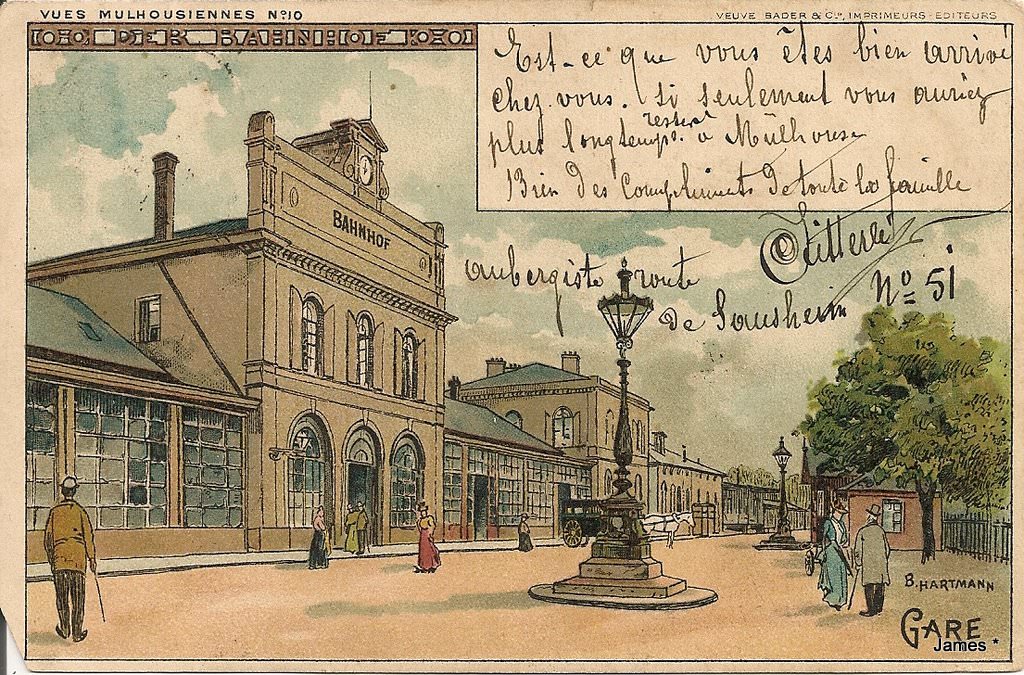 VUES MULHOUSIENNES Nº10
VEUVE BADER & Cie, IMPRIMEURS-EDITEURS
DER BAHNHOF
Est-ce que vous êtes bien arrivé
chez vous. si seulement vous auriez
plus longtemps resté à Mülhouse
Bien des Compliments de toute la famille
aubergiste route
de Sausheim
Nº 51
BAHNHOF
B. HARTMANN
GARE.
James *